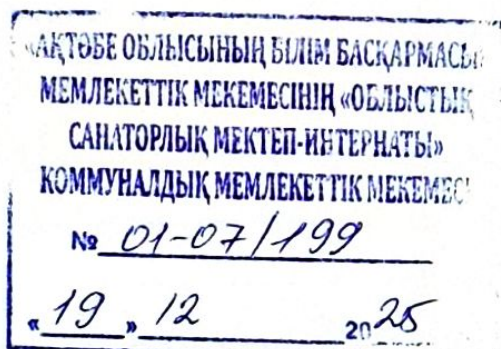 «АҚТӨБЕ ОБЛЫСЫНЫҢ БІЛІМ БАСҚАРМАСЫ»
МЕМЛЕКЕТТІК МЕКЕМЕСІНІҢ «ОБЛЫСТЫҚ
САНАТОРЛЫҚ МЕКТЕП-ИНТЕРНАТЫ»
КОММУНАЛДЫҚ МЕМЛЕКЕТТІК МЕКЕМЕСІ
№ 01-07/199
«19» 12 2025